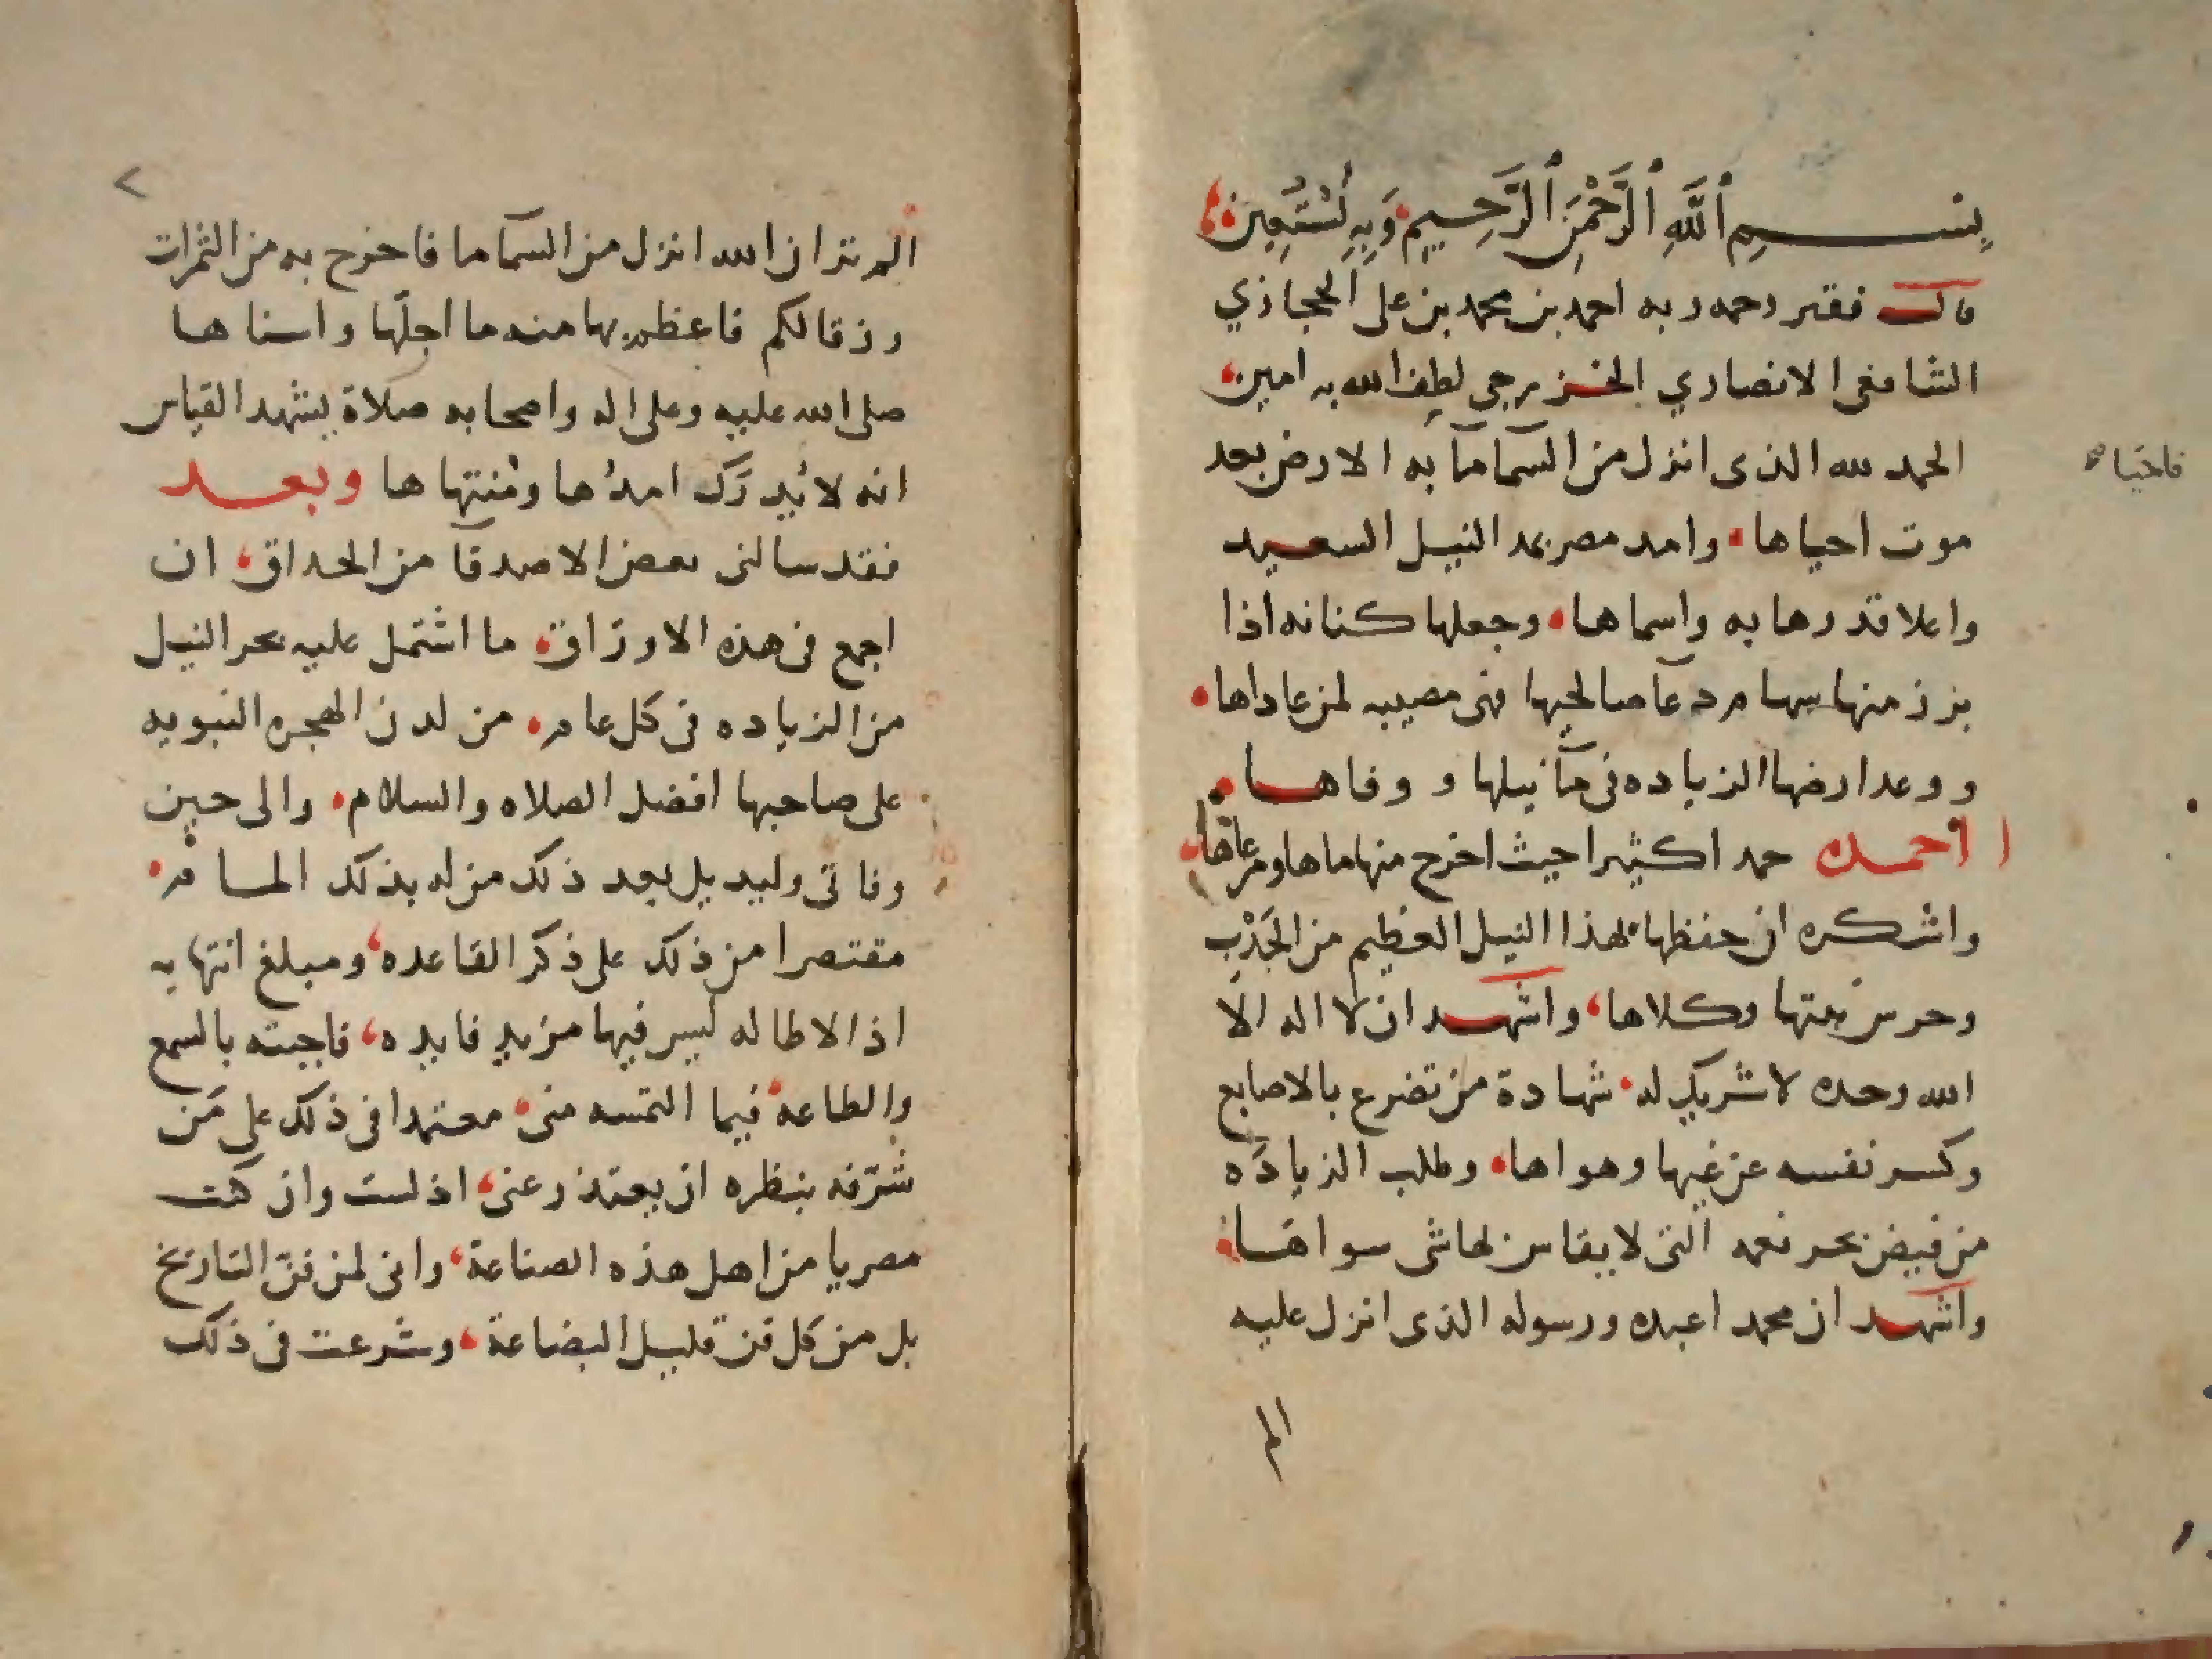 بِسْمِ ٱللَّهِ ٱلرَّحْمَنِ ٱلرَّحِيمِ وَبِهِ نَسْتَعِين
قال فقير رحمه ربه احمد بن محمد بن على الحجازي
الشافعى الانصاري الخزرجى لطف الله به امين
الحمد لله الذى انزل من السما مآ به الارض بعد
فاحيا
موت احياها وامد مصر بمد النيل السعيد
واعلا قدرها به واسماها وجعلها كنانه اذا
برز منها سهام دعآ صالحيها فهى مصيبه لمن عاداها
ووعد ارضها الزياده فى مآ نيلها و وفاها
احمده حمد اكثيرا حيث اخرج منها ماها ومرعاها
واشكره ان حفظها بهذا النيل العظيم من الجَدْبِ
وحرس بقعتها وكلاها واشهد ان لا اله الا
الله وحده لا شريك له شهادة من تضرع بالاصابع
وكسر نفسه عن غيها وهواها وطلب الزيادَه
من فيض بحر نعمه التى لا يقاس بها شى سواها
واشهد ان محمد اعبده ورسوله الذى انزل عليه
الم
الم تر ان الله انزل من السمآ ما فاخرج به من الثمرات
رزقا لكم فاعظم بها منه ما اجلّها واسناها
صلى الله عليه وعلى اله واصحابه صلاة يشهد القياس
انه لا يُدرَك امدُها ومُنتهاها وبعد
فقد سالنى بعض الاصدقآ من الحداق ان
اجمع فى هذه الاوراق ما اشتمل عليه بحر النيل
من الزياده فى كل عام من لدن الهجره النبويه
على صاحبها افضل الصلاه والسلام والى حين
وفاتى وليديل بعد ذلك من له بذلك المام
مقتصرا من ذلك على ذكر القاعده ومبلغ انتهايه
اذ الاطاله ليس فيها مزيد فايده فاجبته بالسمع
والطاعه فيما التمسه منى معتمدا فى ذلك على مَن
شرّفه بنظره ان يعتذر عنى اذ لست وان كنت
مصريا من اهل هذه الصناعة وانى لمن فنّ التاريخ
بل من كل فن قليل البضاعة وشرعت فى ذلك